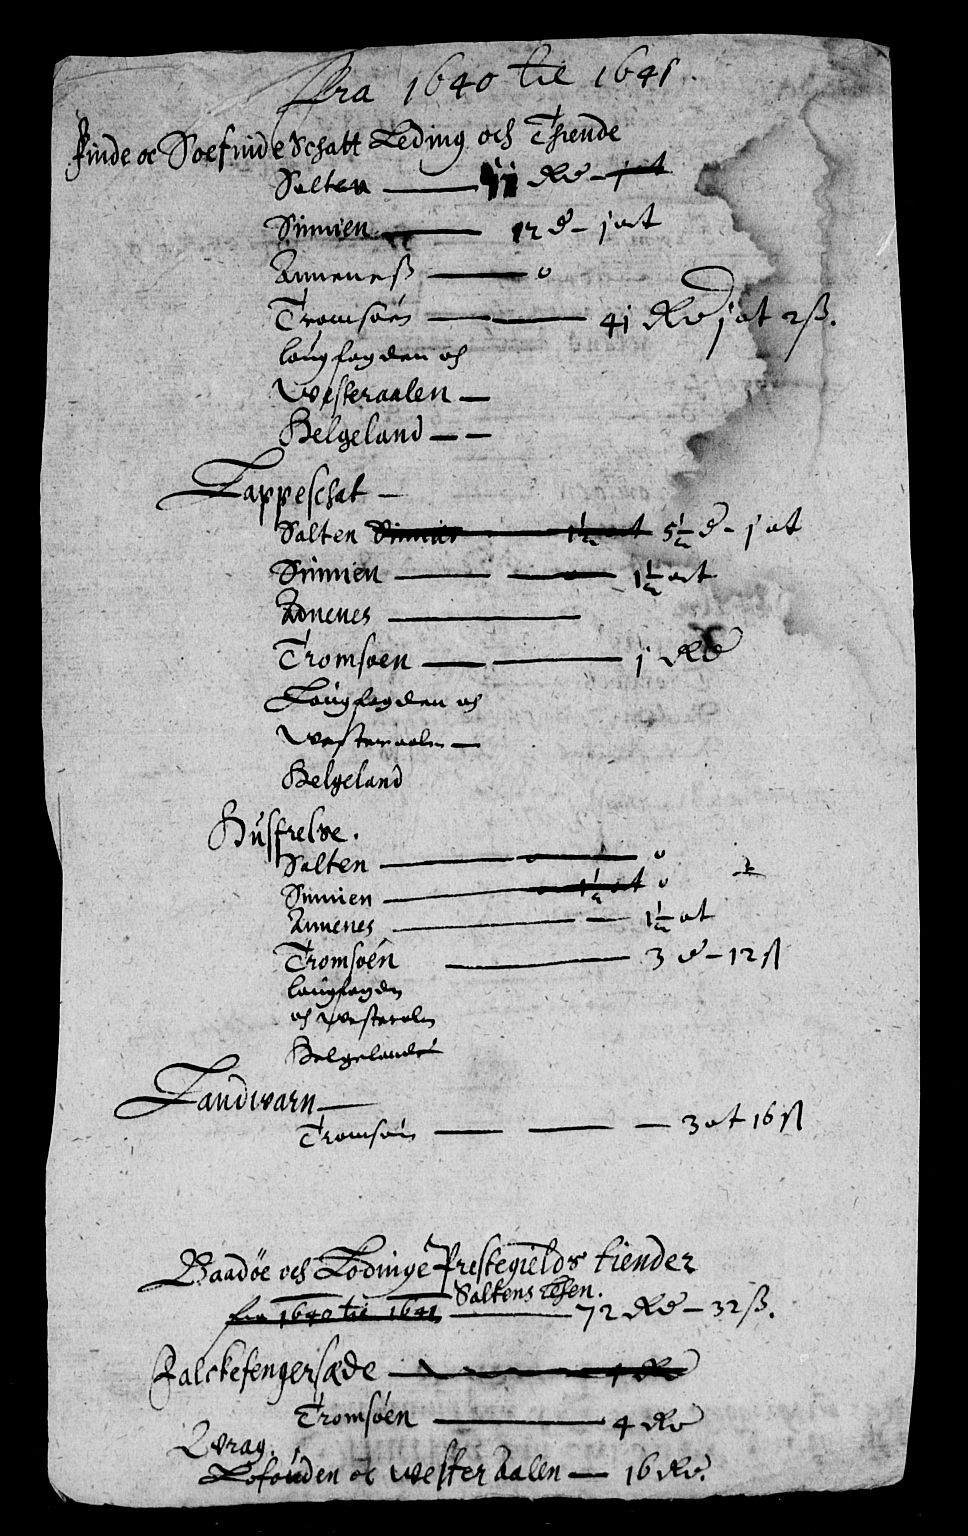 fra 1640 til 1641.
Finde oc Soefinde Schatt Leding och Thiende
Salten — 11 Rd – 1 ort
Sinnien — 12 d – 1 ort
Annenes — 0
Tromsøen — 41 Rd 1 ort 2 ß.
lougfogden och
Westeraalen —
Helgeland — —
Lappeschat —
Salten Sinnien — 1½ ort 5½ d – 1 ort
Sinnien — 1½ ort
Annenes —
Tromsøen — 1 Rd
Lougfogden och
Westeraalen —
Helgeland
Husfrelse.
Salten — 0
Sinnien — 1½ ort 0
Annenes — 1½ ort
Tromsøen — 3 d – 12 ß
lougfogden
och Westeralen
Helgeland
Landvarn —
Tromsøn — 3 ort 16 ß
Baadøe och Lodinge Prestegields tiender
Saltens
fra 1640 til 1641 — 72 Rd – 32 ß.
Falckefengersæde — 4 Rd
Tromsøen — 4 Rd
Lofouden oc Wester Aalen — 16 Rd.